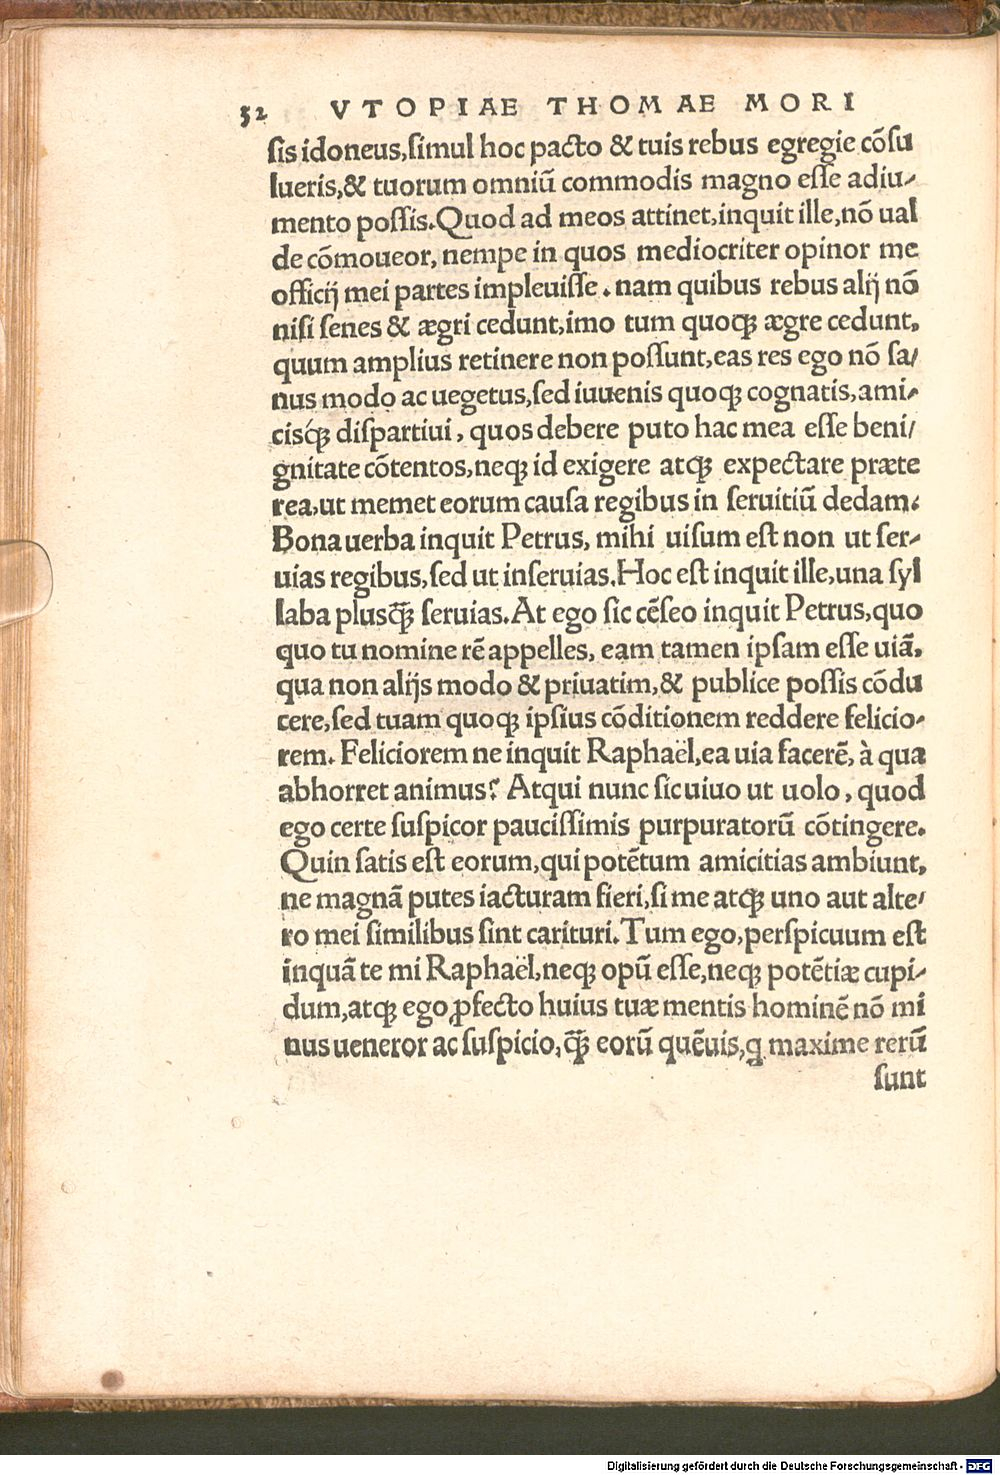 52 VTOPIAE THOMAE MORI
sis idoneus,simul hoc pacto & tuis rebus egregie cõsu
lueris,& tuorum omniũ commodis magno esse adiu-
mento possis.Quod ad meos attinet,inquit ille,nõ ual
de cõmoueor, nempe in quos mediocriter opinor me
officij mei partes impleuisse. nam quibus rebus alij nõ
nisi senes & ægri cedunt,imo tum quoqꝫ ægre cedunt,
quum amplius retinere non possunt,eas res ego nõ sa/
nus modo ac uegetus,sed iuuenis quoqꝫ cognatis,ami-
cisqꝫ dispartiui, quos debere puto hac mea esse beni/
gnitate cõtentos,neqꝫ id exigere atqꝫ expectare præte
rea,ut memet eorum causa regibus in seruitiũ dedam.
Bona uerba inquit Petrus, mihi uisum est non ut ser-
uias regibus,sed ut inseruias.Hoc est inquit ille,una syl
laba plusq̃ꝫ seruias.At ego sic cẽseo inquit Petrus,quo
quo tu nomine rẽ appelles, eam tamen ipsam esse uiã,
qua non alijs modo & priuatim,& publice possis cõdu
cere,sed tuam quoqꝫ ipsius cõditionem reddere felicio-
rem. Feliciorem ne inquit Raphaël,ea uia facerẽ, à qua
abhorret animus? Atqui nunc sic uiuo ut uolo, quod
ego certe suspicor paucissimis purpuratorũ cõtingere.
Quin satis est eorum,qui potẽtum amicitias ambiunt,
ne magnã putes iacturam fieri,si me atqꝫ uno aut alte/
ro mei similibus sint carituri.Tum ego,perspicuum est
inquã te mi Raphaël,neqꝫ opũ esse,neqꝫ potẽtiæ cupi-
dum,atqꝫ ego ꝓfecto huius tuæ mentis hominẽ nõ mi
nus ueneror ac suspicio,q̃ꝫ eorũ quẽuis,ꝗ maxime rerũ
sunt
Digitalisierung gefördert durch die Deutsche Forschungsgemeinschaft - DFG